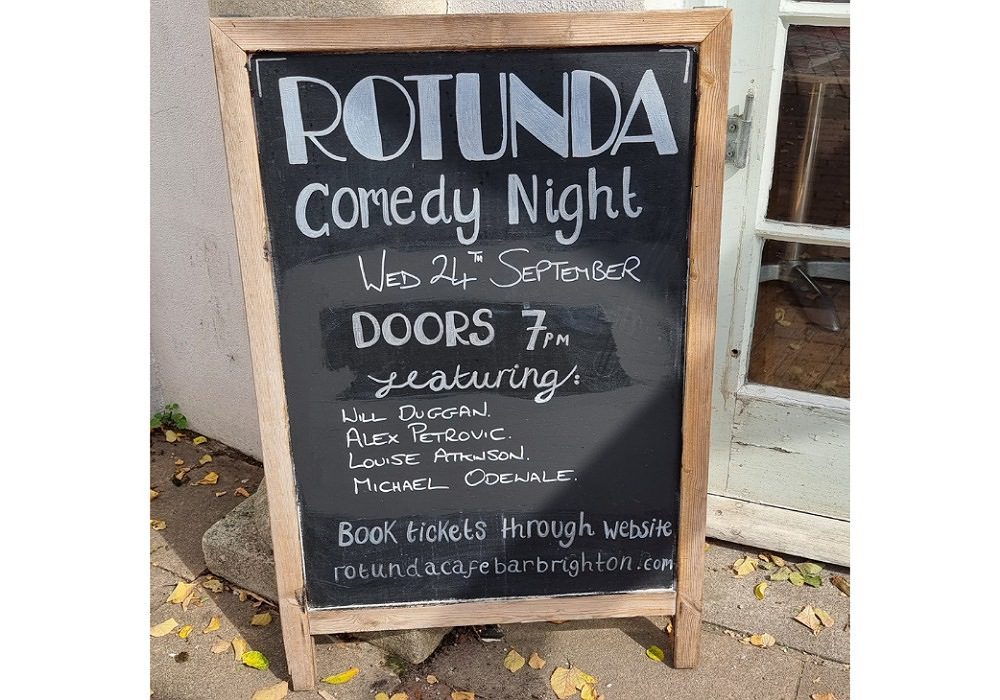 ROTUNDA
Comedy Night
WED 24TH SEPTEMBER
DOORS 7PM
featuring:
WILL DUGGAN.
ALEX PETROVIC.
LOUISE ATKINSON.
MICHAEL ODEWALE.
Book tickets through website
rotundacafebarbrighton.com